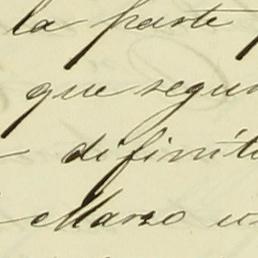 la parte
que segun
difinit
Marzo